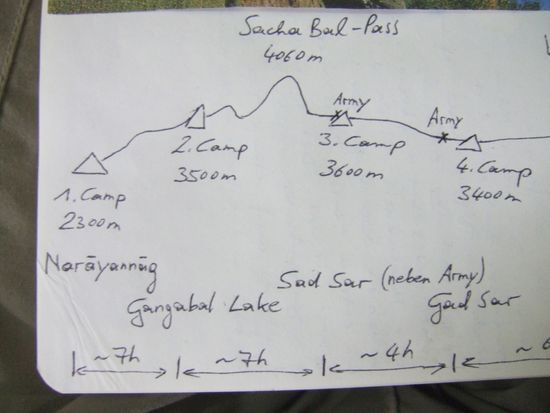 Sacha Bal-Pass
4060m
Army
Army
2. Camp
3500m
3. Camp
3600m
4. Camp
3400m
1. Camp
2300m
Narāyannāg
Gangabal Lake
Sad Sar (neben Army)
Gad Sar
~7h
~7h
~4h
~6